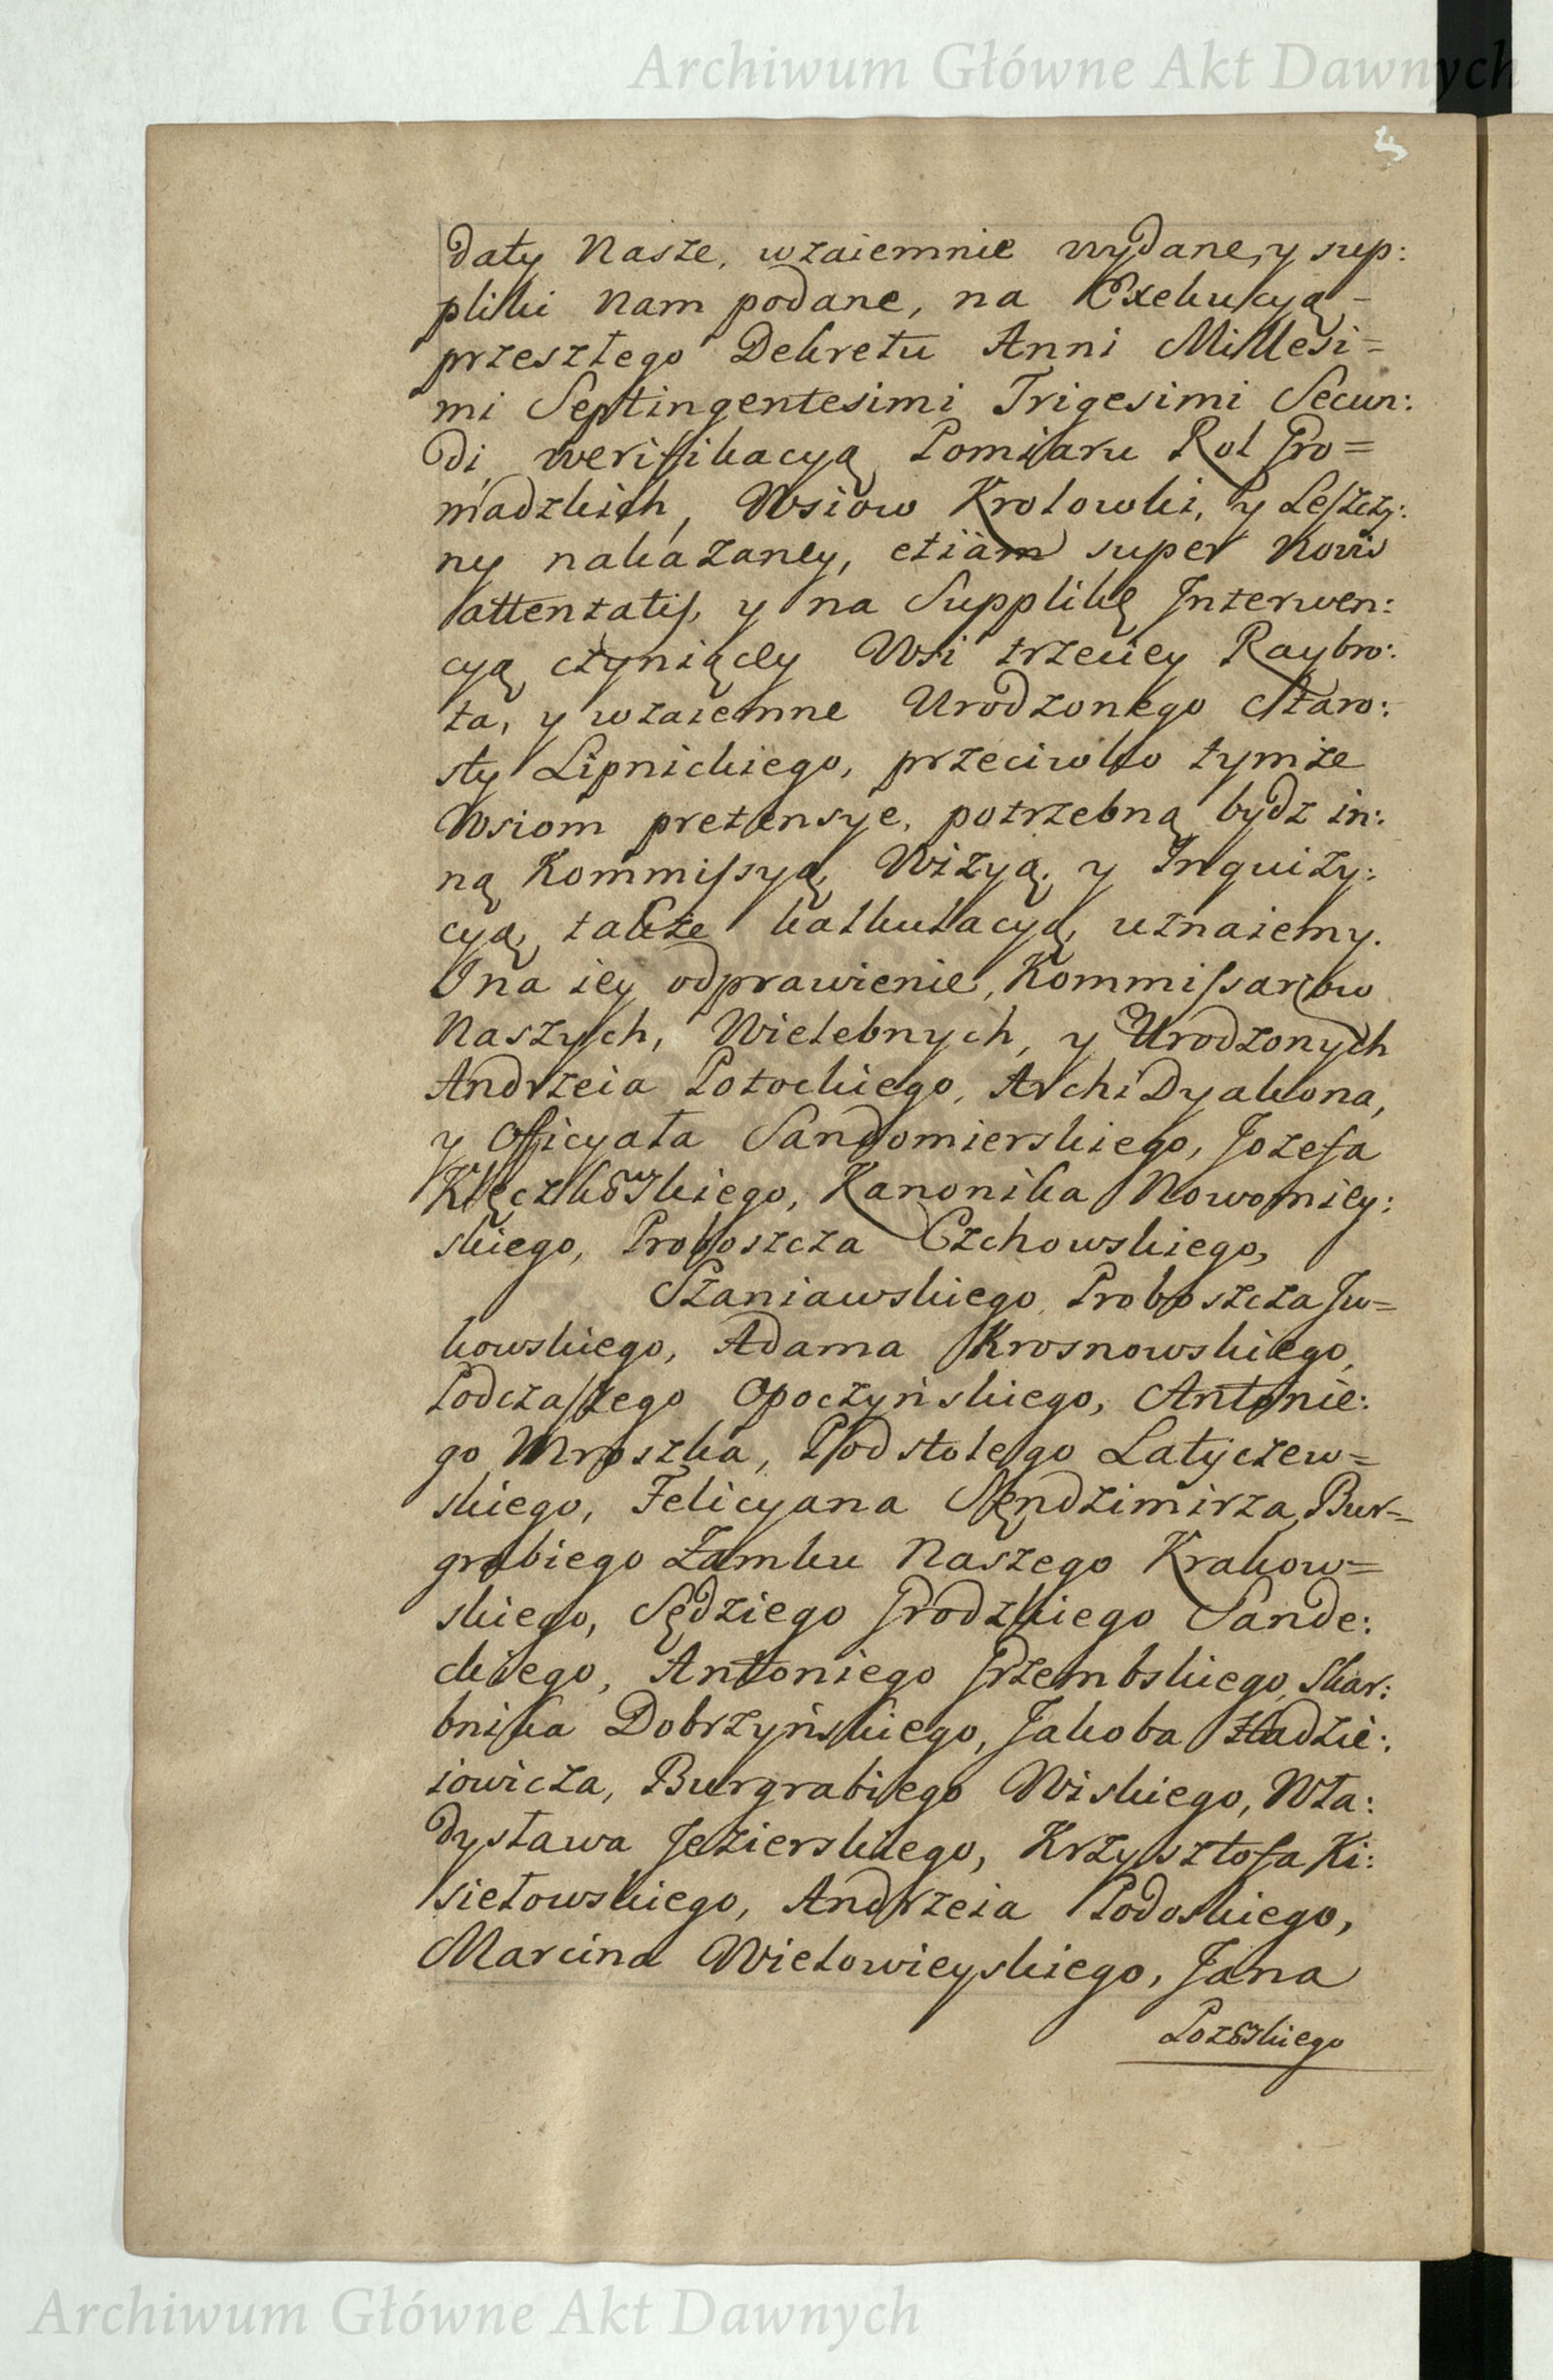 Archiwum Główne Akt Dawnych
daty Nasze, wzaiemnie wydane, y sup:
pliki Nam podane, na Exekucyą
przeszłego Dekretu Anni Millesi=
mi Septingentesimi Trigesimi Secun:
di, weryfikacyą Pomiaru Rol Gro=
madzkich, Wsiow Krolowki, y Leszczy:
ny nakazaney, etiam super novis
attentatis, y na Supplikę Interwen:
cyą czyniącey Wsi trzeciey Raybro:
ta, y wzaiemne Urodzonego Staro:
sty Lipnickiego, przeciwko tymże
Wsiom pretensye, potrzebną bydz in:
ną Kommissyą, Wizyą, y Inquizy:
cyą, także kalkulacyą, uznaiemy.
I na iey odprawienie, Kommissarzow
Naszych, Wielebnych, y Urodzonych
Andrzeia Potockiego, ArchiDyakona,
y Officyała Sandomierskiego, Jozefa
Kłęczkowskiego, Kanonika Nowomiey:
skiego, Proboszcza Czchowskiego,
Staniawskiego, Proboszcza Ju=
kowskiego, Adama Krosnowskiego,
Podczaszego Opoczyńskiego, Antonie:
go Mroszka, Podstolego Latyczew=
skiego, Felicyana Sęndzimirza, Bur=
grabiego Zamku Naszego Krakow=
skiego, Sędziego Grodzkiego Sande:
ckiego, Antoniego Grzembskiego, Skar:
bnika Dobrzyńskiego, Jakoba Hadzie:
iowicza, Burgrabiego Wiskiego, Wła:
dysława Jezierskiego, Krzysztofa Ki:
siełowskiego, Andrzeia Podoskiego,
Marcina Wielowieyskiego, Jana
Archiwum Główne Akt Dawnych